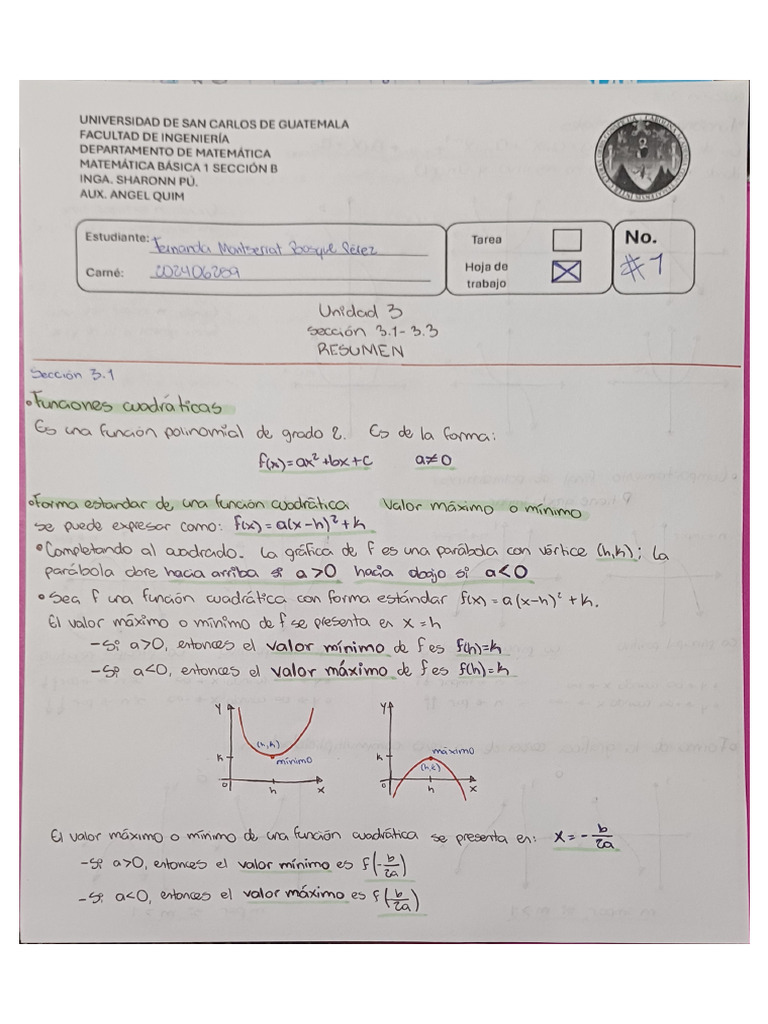 UNIVERSIDAD DE SAN CARLOS DE GUATEMALA
FACULTAD DE INGENIERÍA
DEPARTAMENTO DE MATEMÁTICA
MATEMÁTICA BÁSICA 1 SECCIÓN B
INGA. SHARONN PÚ.
AUX. ANGEL QUIM
Estudiante: Fernanda Montserrat Bosque Pérez
Carné: 202406289
Tarea
Hoja de trabajo
No.
#1
Unidad 3
Sección 3.1-3.3
RESUMEN
Sección 3.1
•Funciones cuadráticas
Es una función polinomial de grado 2. Es de la forma:
f(x)=ax²+bx+c a≠0
•Forma estandar de una función cuadrática Valor máximo o mínimo
se puede expresar como: f(x)=a(x-h)²+k
•Completando al cuadrado. La gráfica de f es una parábola con vértice (h,k); la
parábola abre hacia arriba si a>0 hacia abajo si a<0
•Sea f una función cuadrática con forma estándar f(x)=a(x-h)²+k.
El valor máximo o mínimo de f se presenta en x=h
-Si a>0, entonces el valor mínimo de f es f(h)=k
-Si a<0, entonces el valor máximo de f es f(h)=k
y (h,k) mínimo k 0 h x
y máximo (h,k) k 0 h x
El valor máximo o mínimo de una función cuadrática se presenta en: x=-b/2a
-Si a>0, entonces el valor mínimo es f(-b/2a)
-Si a<0, entonces el valor máximo es f(b/2a)